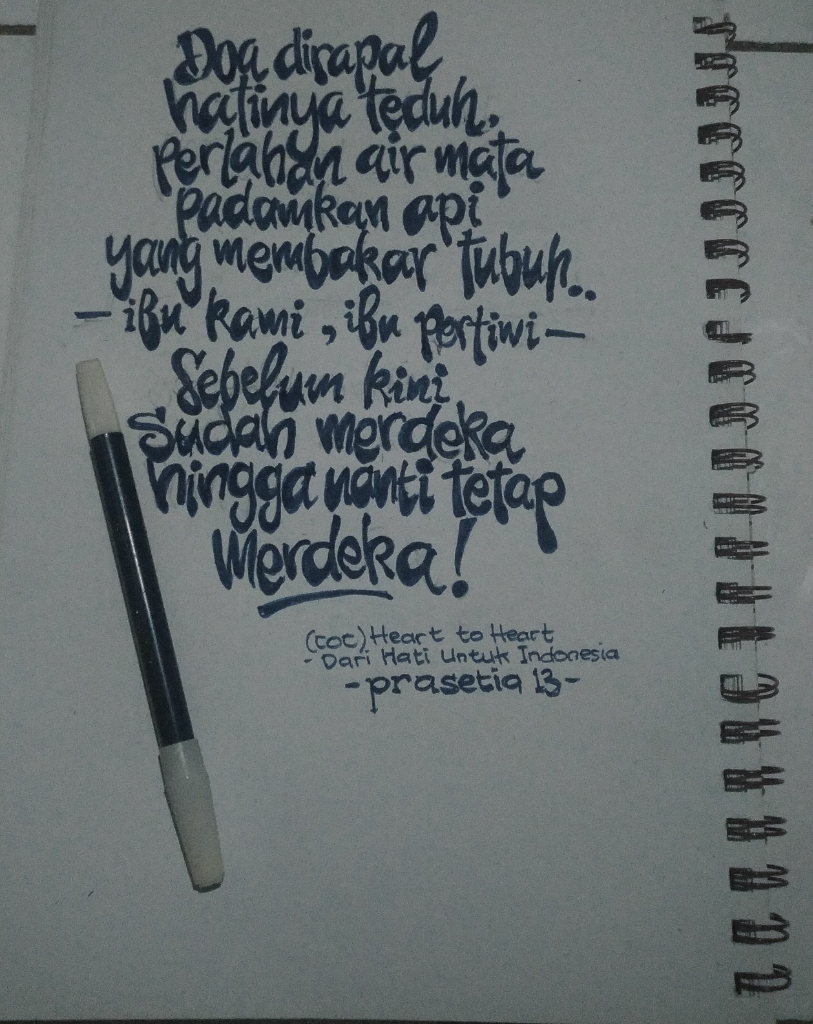 Doa dirapal
hatinya teduh,
perlahan air mata
padamkan api
yang membakar tubuh..
— ibu kami, ibu pertiwi —
Sebelum kini
Sudah merdeka
hingga nanti tetap
Merdeka!
(coc) Heart to Heart
- Dari Hati Untuk Indonesia
- prasetia 13 -